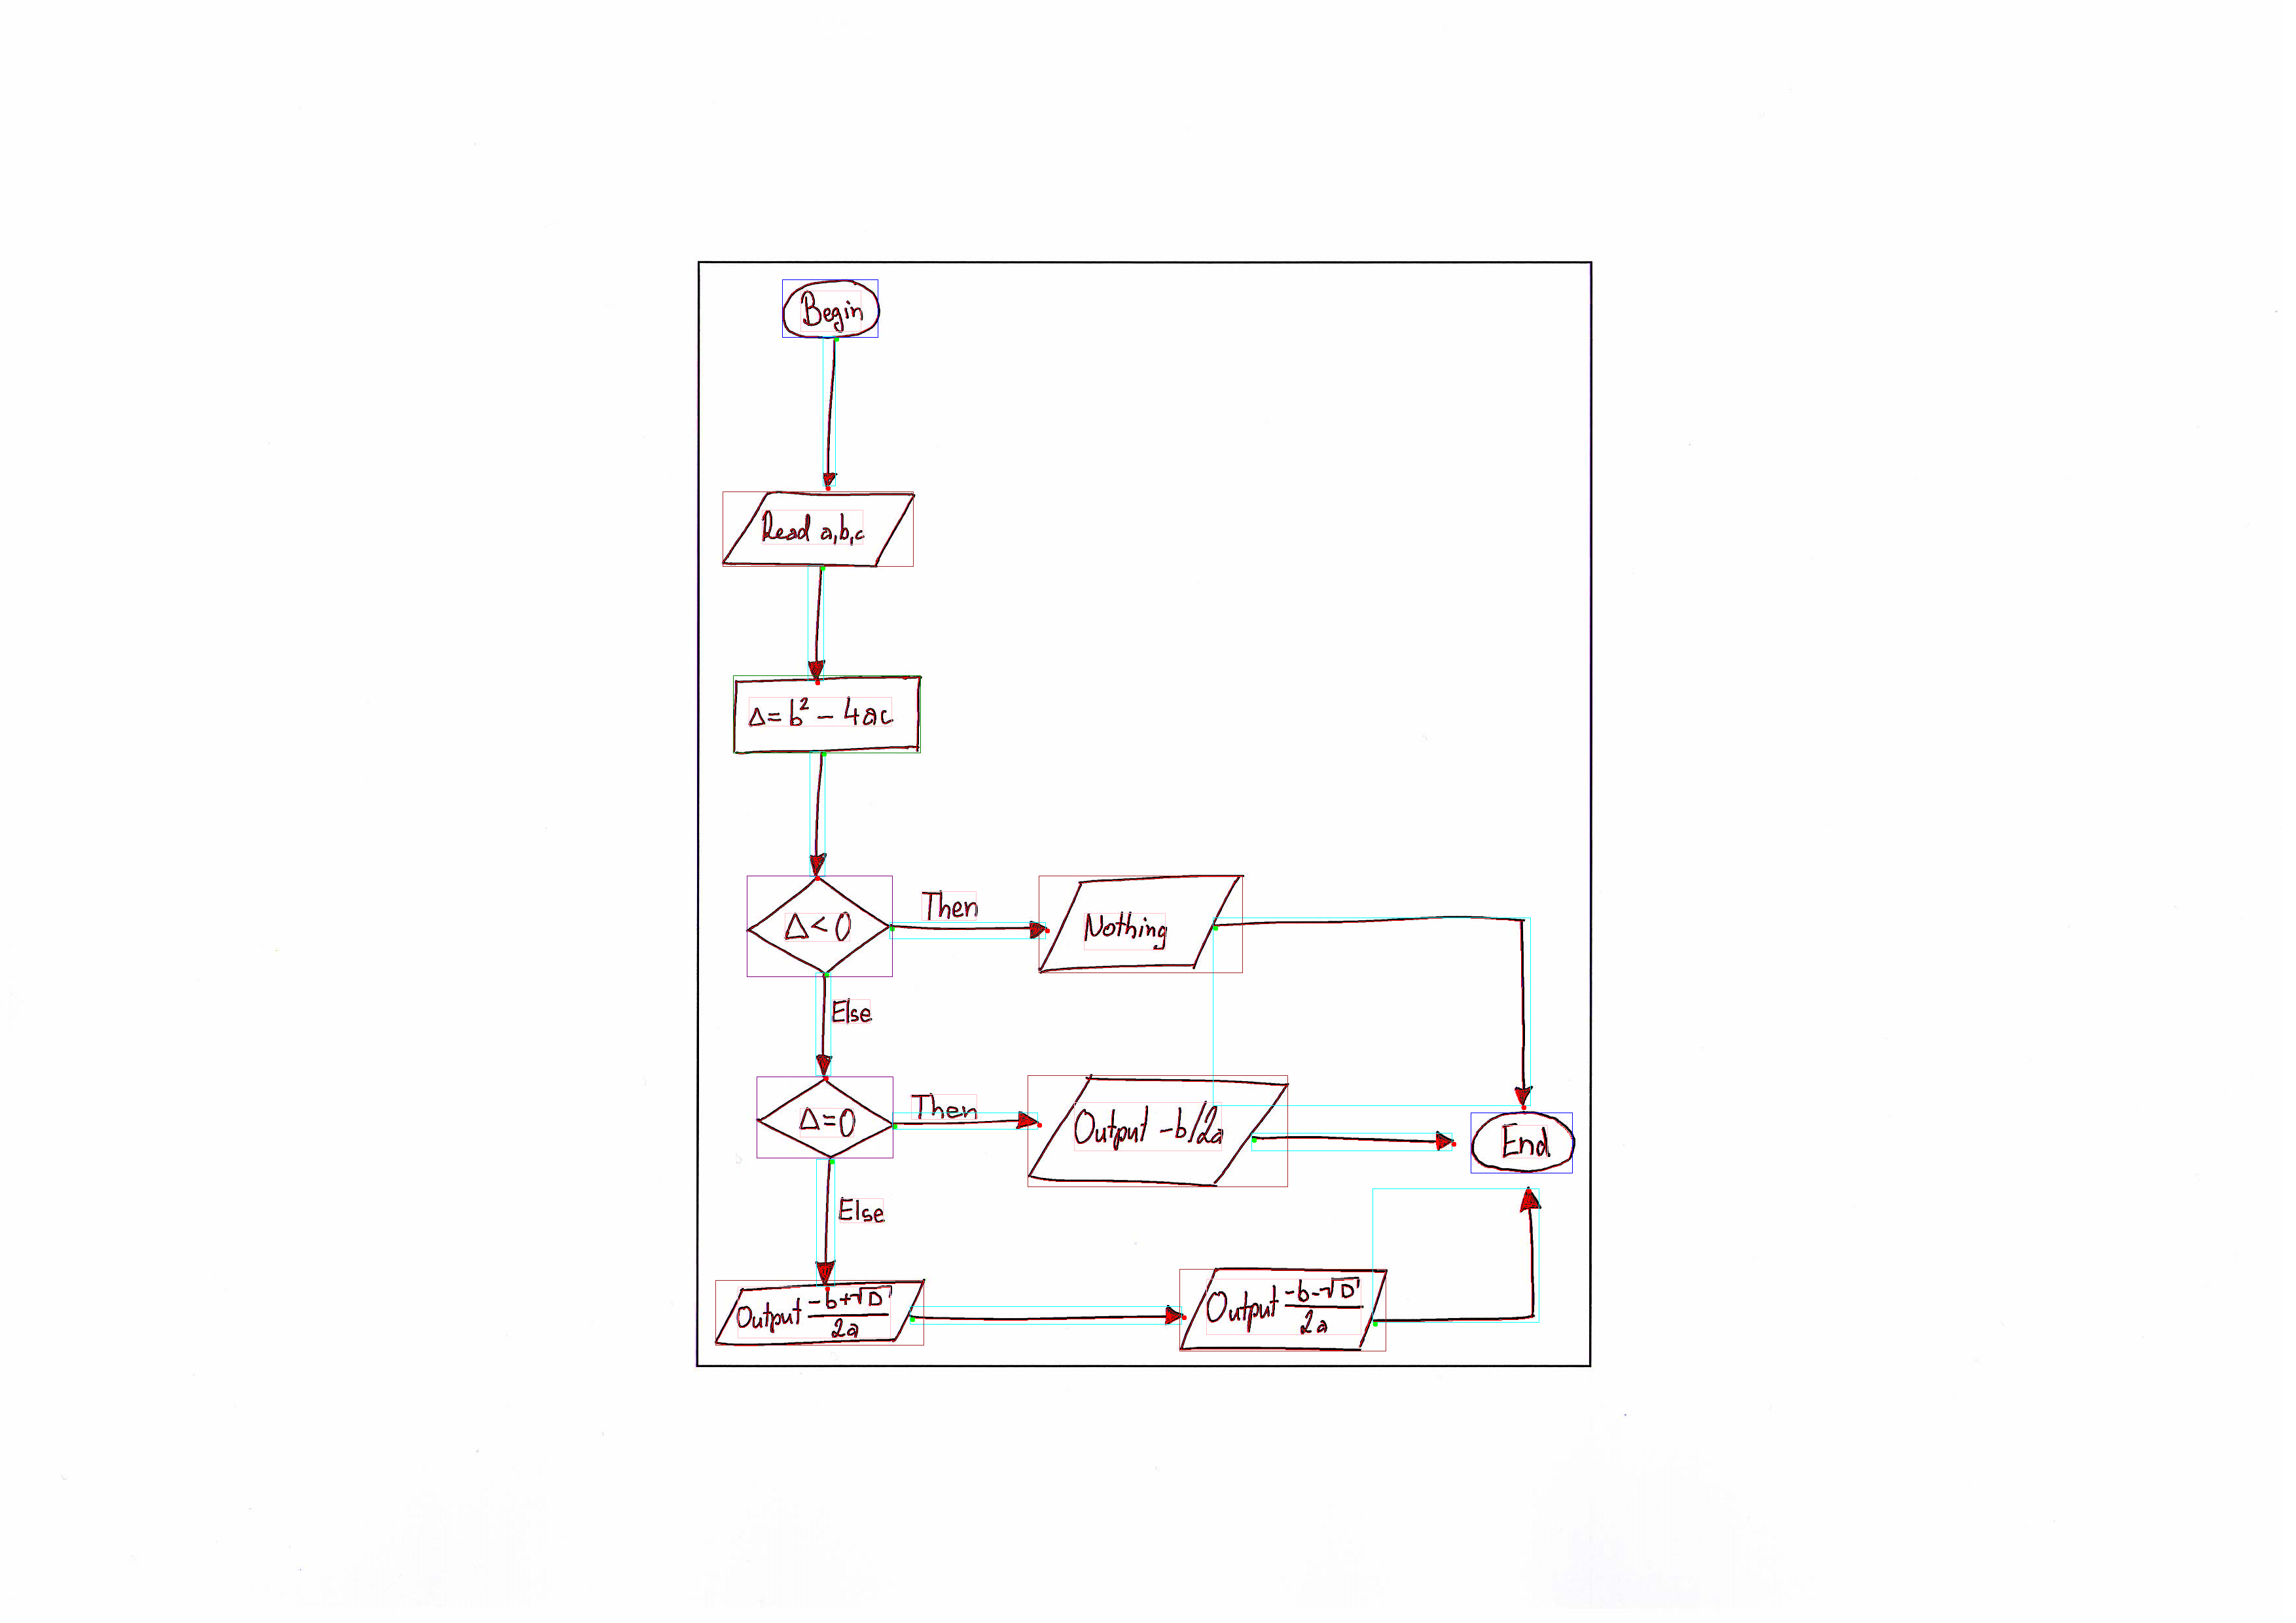 Begin
Read a,b,c
Δ=b² - 4ac
Δ<0
Then
Nothing
Else
Δ=0
Then
Output -b/2a
End
Else
Output (-b+√D)/2a
Output (-b-√D)/2a